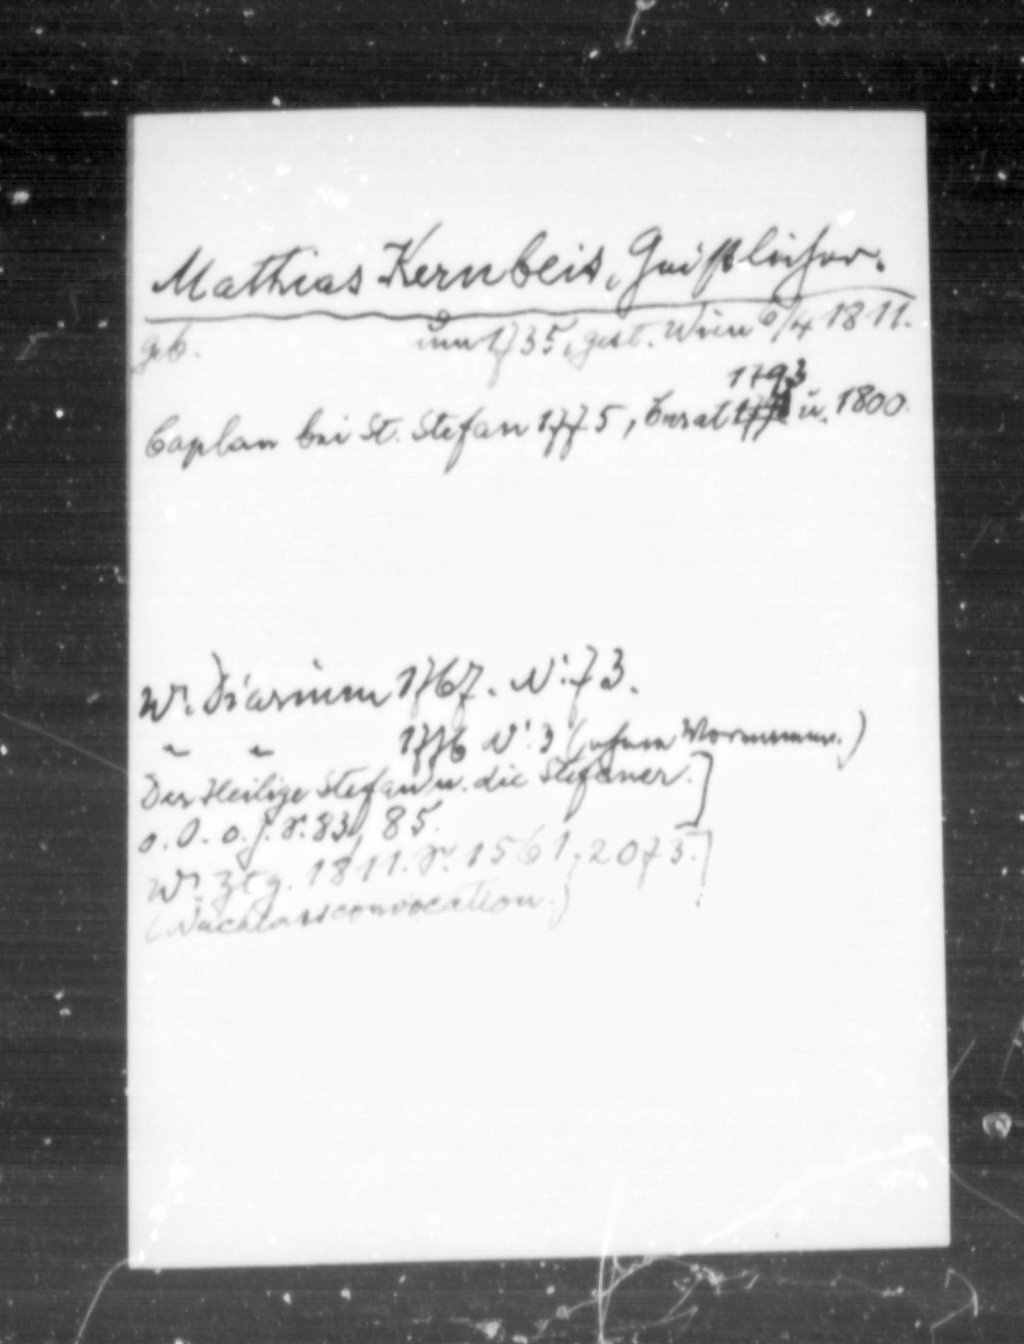 Mathias Kernbeis, Geistlicher.
geb. um 1735, gest. Wien 6/4 1811.
1793
Caplan bei St. Stefan 1775, Curat u. 1800.
Wr. Diarium 1767. Nr. 73.
" " 1776 Nr. 3 (ohne Vornamen.)
Der Heilige Stefan u. die Stefaner.]
o. O. o. J. S. 83, 85.
Wr. Ztg. 1811. S. 1561, 2073.]
(Nachlassconvocation.)